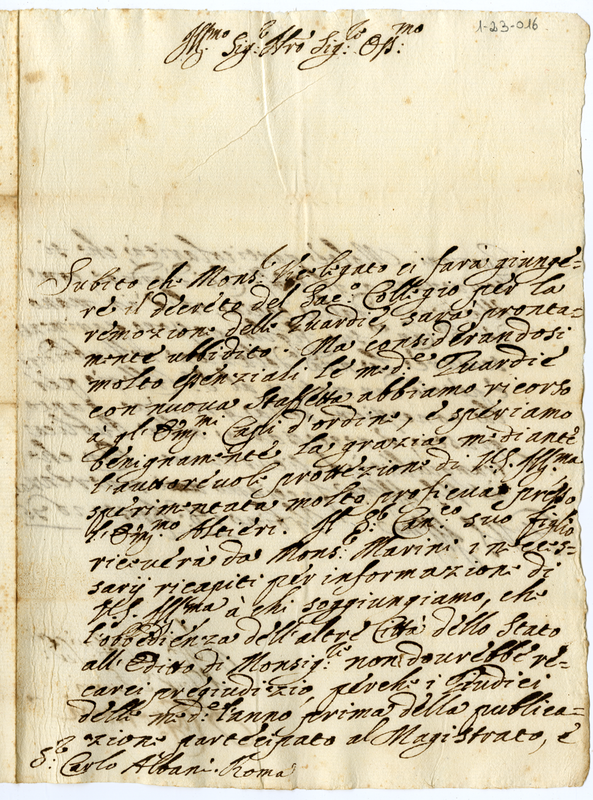 1-23-016
Ill.mo Sig.r Nro Sig.r Oss.mo
Subito che Mons.r Vicelegato ci farà giunge=
re il decreto del Sac.o Collegio per la
remozione delle Guardie, sarà pronta=
mente ubbidito. Ma considerandosi
molto essenziali le med.e Guardie
con nuova Staffetta abbiamo ricorso
à gl'Em.mi Capi d'ordine, e speriamo
benignamente la grazia mediante
l'autorevole protezione di V.S. Ill.ma
sperimentata molto proficua presso
l'Em.mo Altieri. Il S.r Can.co suo figlio
riceverà da Mons.r Marini i neces=
sarij ricapiti per informazione di
V.S. Ill.ma à chi soggiungiamo, che
l'obbedienza dell'altre Città dello Stato
all'Editto di Monsig.re non dourebbe re=
carci pregiudizio, perche i Giudici
delle med.e l'anno prima della publica=
zione partecipato al Magistrato, e
S.r Carlo Albani. Roma